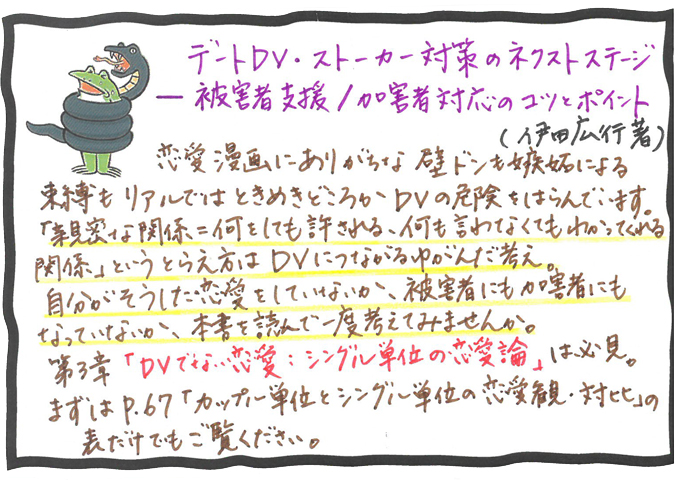 デートDV・ストーカー対策のネクストステージ
―被害者支援/加害者対応のコツとポイント
(伊田広行著)
恋愛漫画にありがちな壁ドンも嫉妬による
束縛もリアルではときめきどころかDVの危険をはらんでいます。
「親密な関係=何をしても許される、何も言わなくてもわかってくれる
関係」というとらえ方はDVにつながるゆがんだ考え。
自分がそうした恋愛をしていないか、被害者にも加害者にも
なっていないか、本書を読んで一度考えてみませんか。
第3章「DVでない恋愛:シングル単位の恋愛論」は必見。
まずはP.67「カップル単位とシングル単位の恋愛観・対比」の
表だけでもご覧ください。